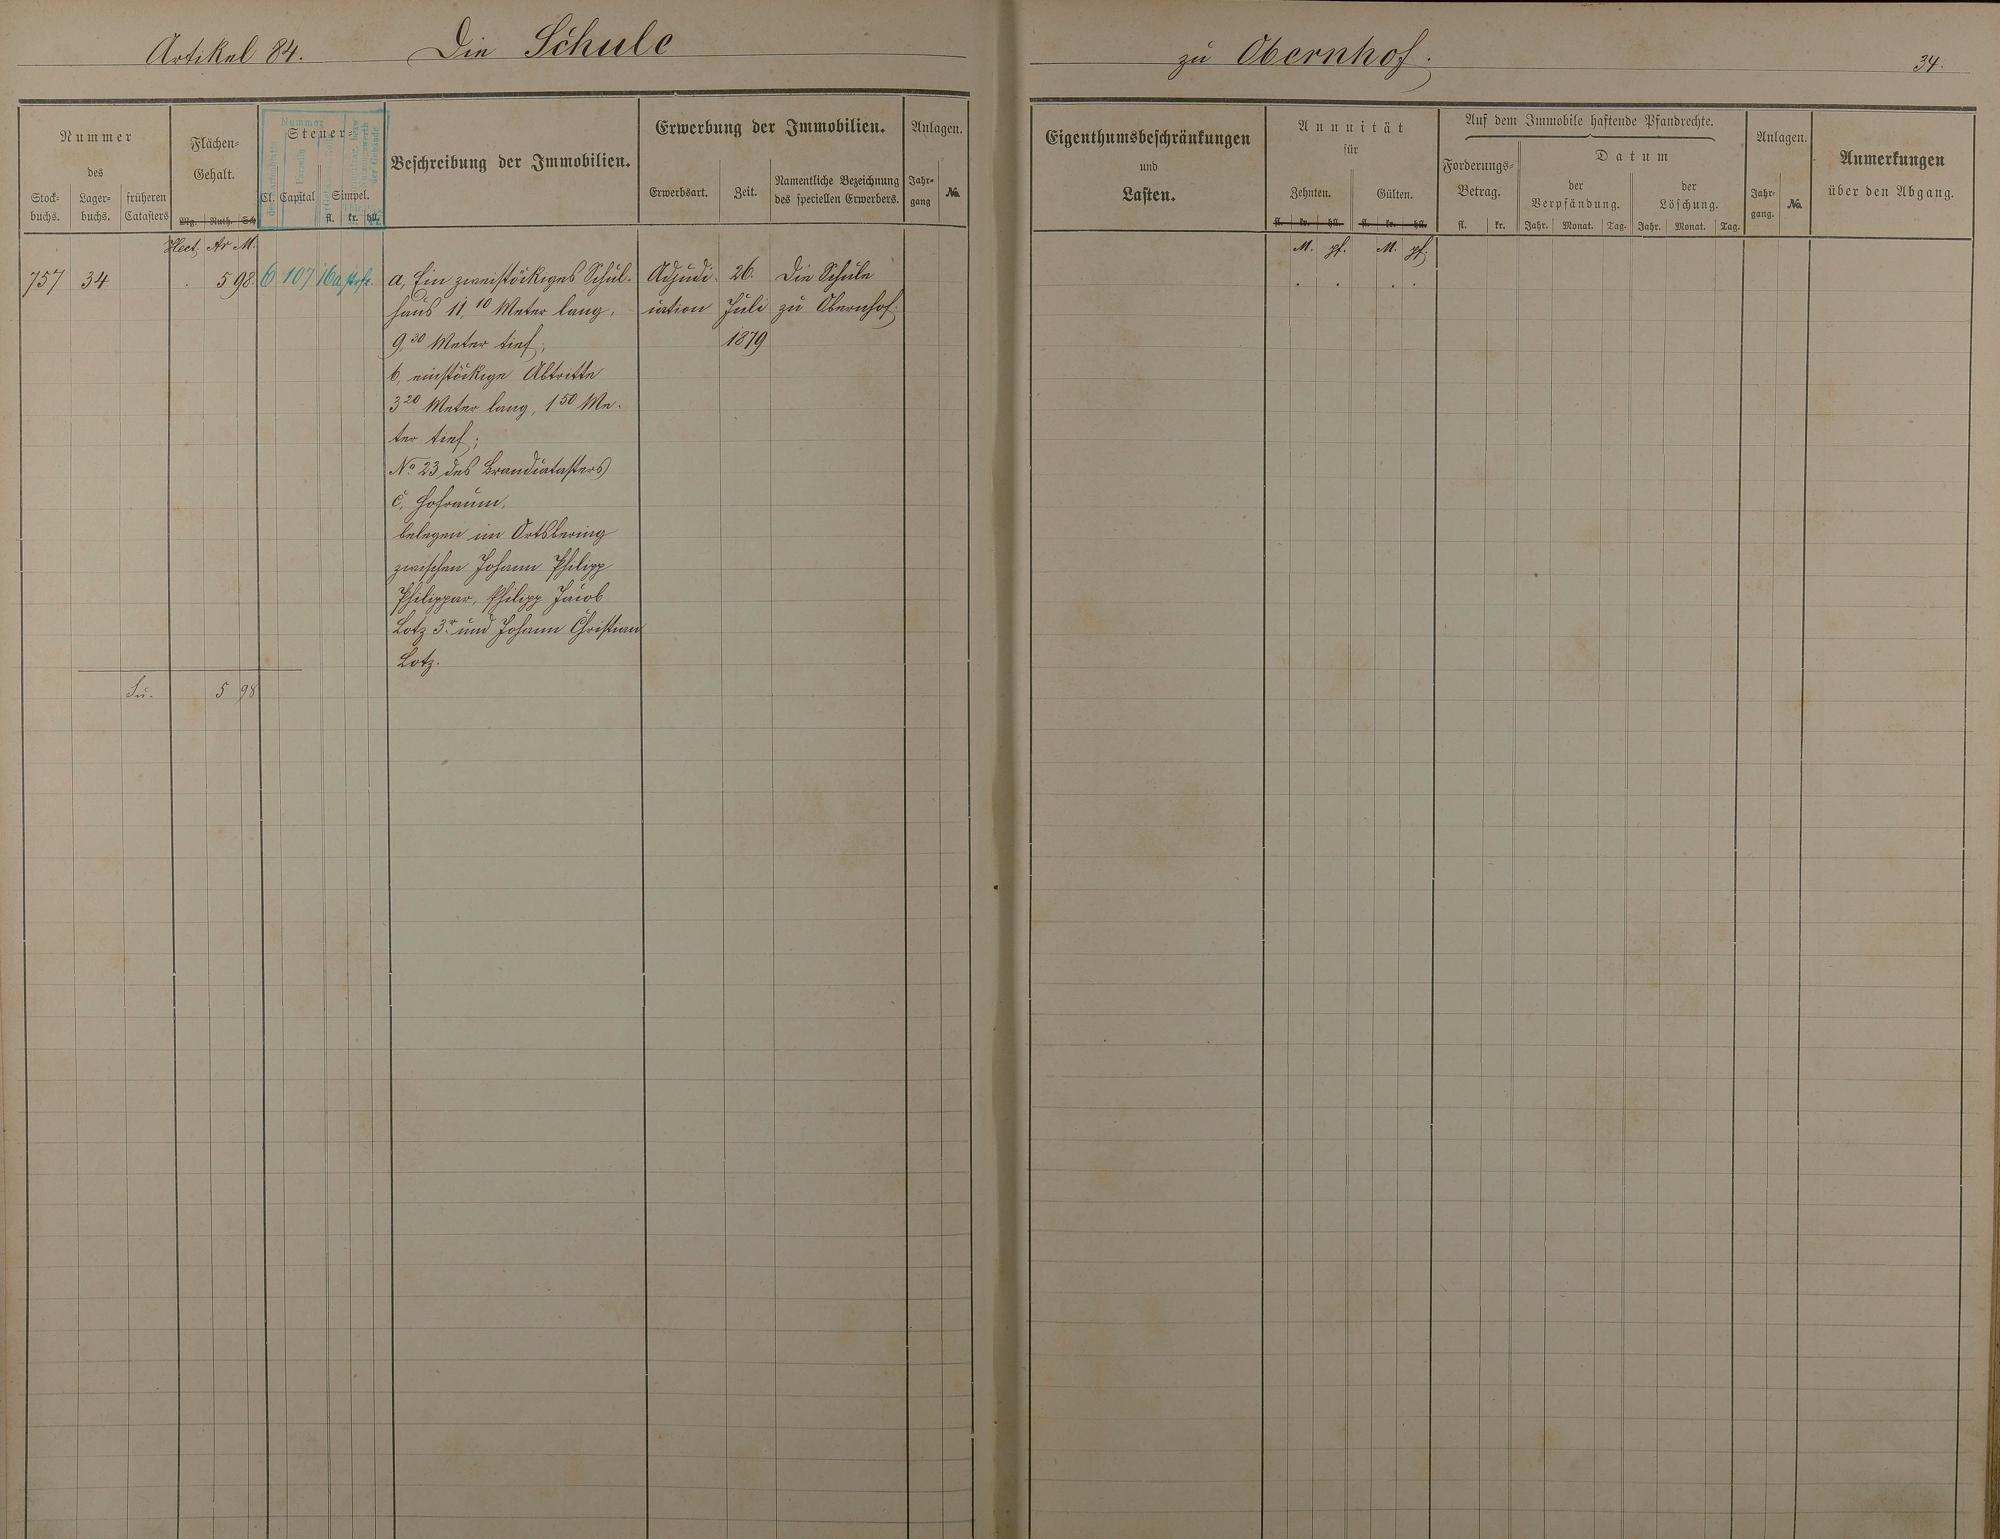 Artikel 84. Die Schule zu Obernhof. 34.
Nummer
des
Stock-
buchs.
Lager-
buchs.
früheren
Catasters
Flächen-
Gehalt.
Mg. Ruth. Sch
Hect. Ar M.
Nummer
Steuer-
Cl. Capital Simpel.
fl. kr. hll.
Beschreibung der Immobilien.
Erwerbung der Immobilien.
Erwerbsart. Zeit.
Namentliche Bezeichnung
des speciellen Erwerbers.
Anlagen.
Jahr-
gang
No.
Eigenthumsbeschränkungen
und
Lasten.
Annuität
für
Zehnten. Gülten.
fl. kr. hll. fl. kr. hll.
M. pf. M. pf.
Auf dem Immobile haftende Pfandrechte.
Forderungs-
Betrag.
fl. kr.
Datum
der
Verpfändung.
Jahr. Monat. Tag.
der
Löschung.
Jahr. Monat. Tag.
Anlagen.
Jahr-
gang.
No.
Anmerkungen
über den Abgang.
757 34 5 98 6 107 16a
a, Ein zweistöckiges Schul-
haus 11,10 Meter lang,
9,30 Meter tief;
b, einstöckige Abtritte
3 20 Meter lang, 1 50 Me-
ter tief;
No 23 des Brandcatasters
c, Hofraum,
belegen im Ortsbering
zwischen Johann Philipp
Philippar, Philipp Jacob
Lotz 3r und Johann Christian
Lotz.
Adjudi-
cation
26.
Juli
1879
Die Schule
zu Obernhof.
Su. 5 98